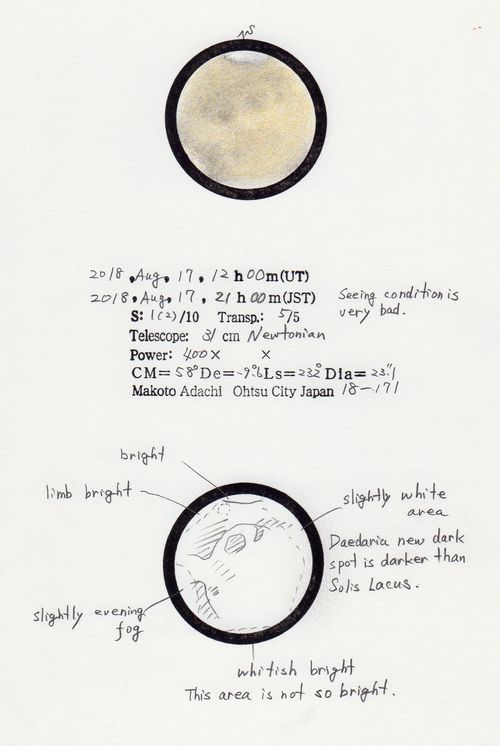 S
2018, Aug, 17, 12 h 00 m (UT)
2018, Aug, 17, 21 h 00 m (JST)
Seeing condition is
very bad.
S: 1(2) /10 Transp.: 5/5
Telescope: 31 cm Newtonian
Power: 400 × ×
CM= 58° De= -9.°6 Ls= 232° Dia= 23."1
Makoto Adachi Ohtsu City Japan 18-171
bright
limb bright
slightly white
area
Daedaria new dark
spot is darker than
Solis Lacus.
slightly evening
fog
whitish bright
This area is not so bright.